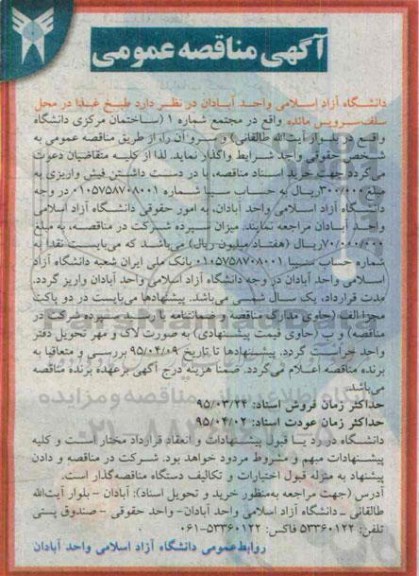 آگهی مناقصه عمومی
دانشگاه آزاد اسلامی واحد آبادان در نظر دارد طبخ غذا در محل
سلف‌سرویس مائده واقع در مجتمع شماره ۱ (ساختمان مرکزی دانشگاه
واقع در بلوار آیت‌الله طالقانی) و سرو آن را، از طریق مناقصه عمومی به
شخص حقوقی واجد شرایط واگذار نماید. لذا از کلیه متقاضیان دعوت
می‌گردد جهت خرید اسناد مناقصه، با در دست داشتن فیش واریزی به
مبلغ ۳۰۰/۰۰۰ ریال به حساب سیبا شماره ۰۱۰۵۷۵۸۷۰۸۰۰۱ در وجه
دانشگاه آزاد اسلامی واحد آبادان، به امور حقوقی دانشگاه آزاد اسلامی
واحد آبادان مراجعه نمایند. میزان سپرده شرکت در مناقصه، به مبلغ
۷۰/۰۰۰/۰۰۰ ریال (هفتاد میلیون ریال) می‌باشد که می‌بایست نقدا به
شماره حساب سیبا ۰۱۰۵۷۵۸۷۰۸۰۰۱ بانک ملی ایران شعبه دانشگاه آزاد
اسلامی واحد آبادان در وجه دانشگاه آزاد اسلامی واحد آبادان واریز گردد.
مدت قرارداد، یک سال شمسی می‌باشد. پیشنهادها می‌بایست در دو پاکت
مجزا الف (حاوی مدارک مناقصه و ضمانتنامه یا رسید سپرده شرکت در
مناقصه) و ب (حاوی قیمت پیشنهادی) به صورت لاک و مهر تحویل دفتر
واحد حراست گردد. پیشنهادها تا تاریخ ۹۵/۰۴/۰۹ بررسی و متعاقبا به
برنده مناقصه اعلام می‌گردد. ضمنا هزینه درج آگهی برعهده برنده مناقصه
می‌باشد.
حداکثر زمان فروش اسناد: ۹۵/۰۳/۲۴
حداکثر زمان عودت اسناد: ۹۵/۰۴/۰۲
دانشگاه در رد یا قبول پیشنهادات و انعقاد قرارداد مختار است و کلیه
پیشنهادات مبهم و مشروط مردود خواهد بود. شرکت در مناقصه و دادن
پیشنهاد به منزله قبول اختیارات و تکالیف دستگاه مناقصه‌گذار است.
آدرس (جهت مراجعه به‌منظور خرید و تحویل اسناد): آبادان - بلوار آیت‌الله
طالقانی - دانشگاه آزاد اسلامی واحد آبادان- واحد حقوقی - صندوق پستی
تلفن: ۵۳۳۶۰۱۲۲ فاکس: ۵۳۳۶۰۱۲۲-۰۶۱
روابط عمومی دانشگاه آزاد اسلامی واحد آبادان
ParsNamadData